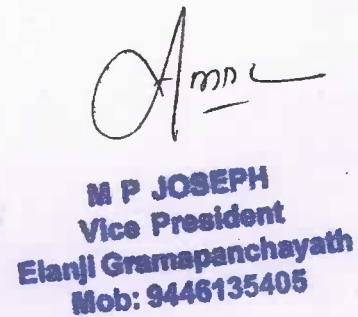 M P JOSEPH
Vice President
Elanji Gramapanchayath
Mob: 9446135405